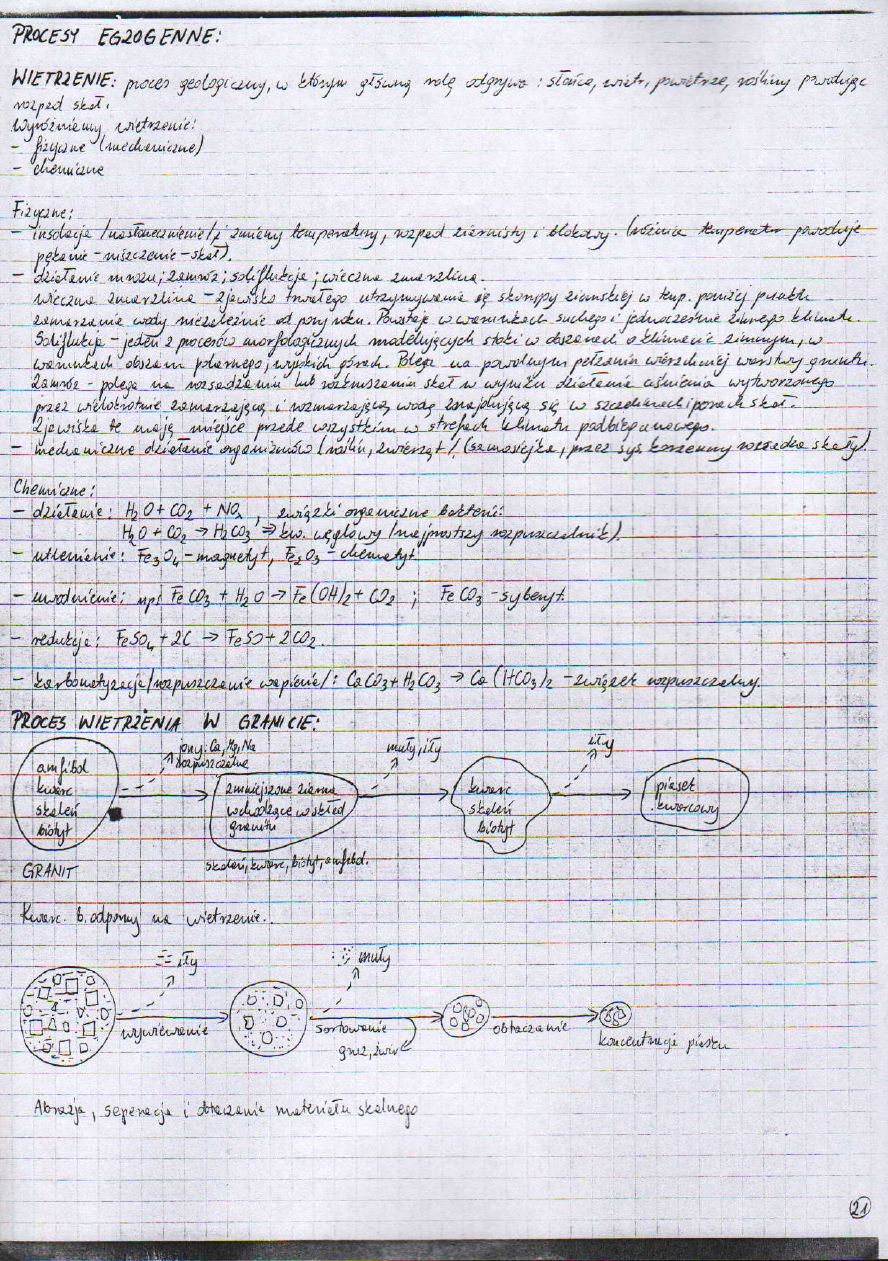 PROCESY EGZOGENNE:
WIETRZENIE: proces geologiczny, w którym główną rolę odgrywa: słońce, wiatr, powietrze, rośliny powodując
rozpad skał.
Wyróżniamy wietrzenie:
- fizyczne (mechaniczne)
- chemiczne
Fizyczne:
- insolacja /nasłonecznienie/ i zmiany temperatury, rozpad ziarnisty i blokowy. (różnica temperatur powoduje
pękanie - niszczenie - skał).
- działanie mrozu; zamróz; soliflukcja; wieczna zmarzlina.
wieczna zmarzlina - zjawisko trwałego utrzymywania się skorupy ziemskiej w temp. poniżej punktu
zamarzania wody niezależnie od pory roku. Powstaje w warunkach suchego i jednocześnie zimnego klimatu.
Soliflukcja - jeden z procesów morfologicznych modelujących stoki w obszarach o klimacie zimnym, w
warunkach obszaru polarnego, wysokich górach. Polega na powolnym pełzaniu wierzchniej warstwy gruntu.
Zamróz - polega na rozsadzaniu lub rozkruszaniu skał w wyniku działania ciśnienia wytworzonego
przez wielokrotnie zamarzającą i rozmarzającą wodę znajdującą się w szczelinach i porach skał.
Zjawiska te mają miejsce przede wszystkim w strefach klimatu podbiegunowego.
- mechaniczne działanie organizmów (roślin, zwierząt) (samosiejka, przez sys. korzenny rozsadza skały).
Chemiczne:
- działanie: H2O + CO2 + NOx, związki organiczne bakterii:
H2O + CO2 → H2CO3 ⇒ kw. węglowy (najprostszy rozpuszczalnik).
- utlenienie: Fe3O4 - magnetyt, Fe2O3 - chematyt
- uwodnienie: np: FeCO3 + H2O → Fe(OH)2 + CO2 ; FeCO3 - syderyt.
- redukcja: FeSO4 + 2C → FeSO + 2CO2.
- karbonatyzacja /rozpuszczanie wapienie/: CaCO3 + H2CO3 → Ca(HCO3)2 - związek rozpuszczalny.
PROCES WIETRZENIA W GRANICIE:
jony: Ca, Mg, Na
rozpuszczalne
muły, iły
iły
amfibol
kwarc
skaleń
biotyt
zmniejszone ziarna
wchodzące w skład
granitu
kwarc
skaleń
biotyt
piasek
kwarcowy
GRANIT
skaleń, kwarc, biotyt, amfibol.
Kwarc. b. odporny na wietrzenie..
iły
muły
wywiewanie
sortowanie
gruz, żwir
obtaczanie
koncentracja piasku
Abrazja, seperacja i obtaczanie materiału skalnego
21